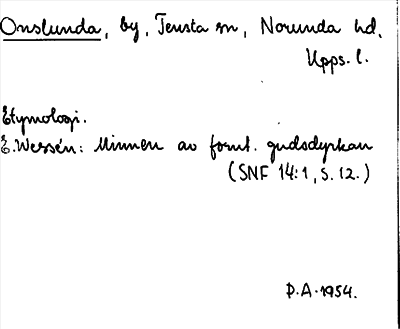 Onslunda, by, Tensta sn, Norunda hd,
Upps. l.
Etymologi.
E. Wessén: Minnen av fornt. gudsdyrkan
(SNF 14:1, S. 12.)
P.A. 1954.